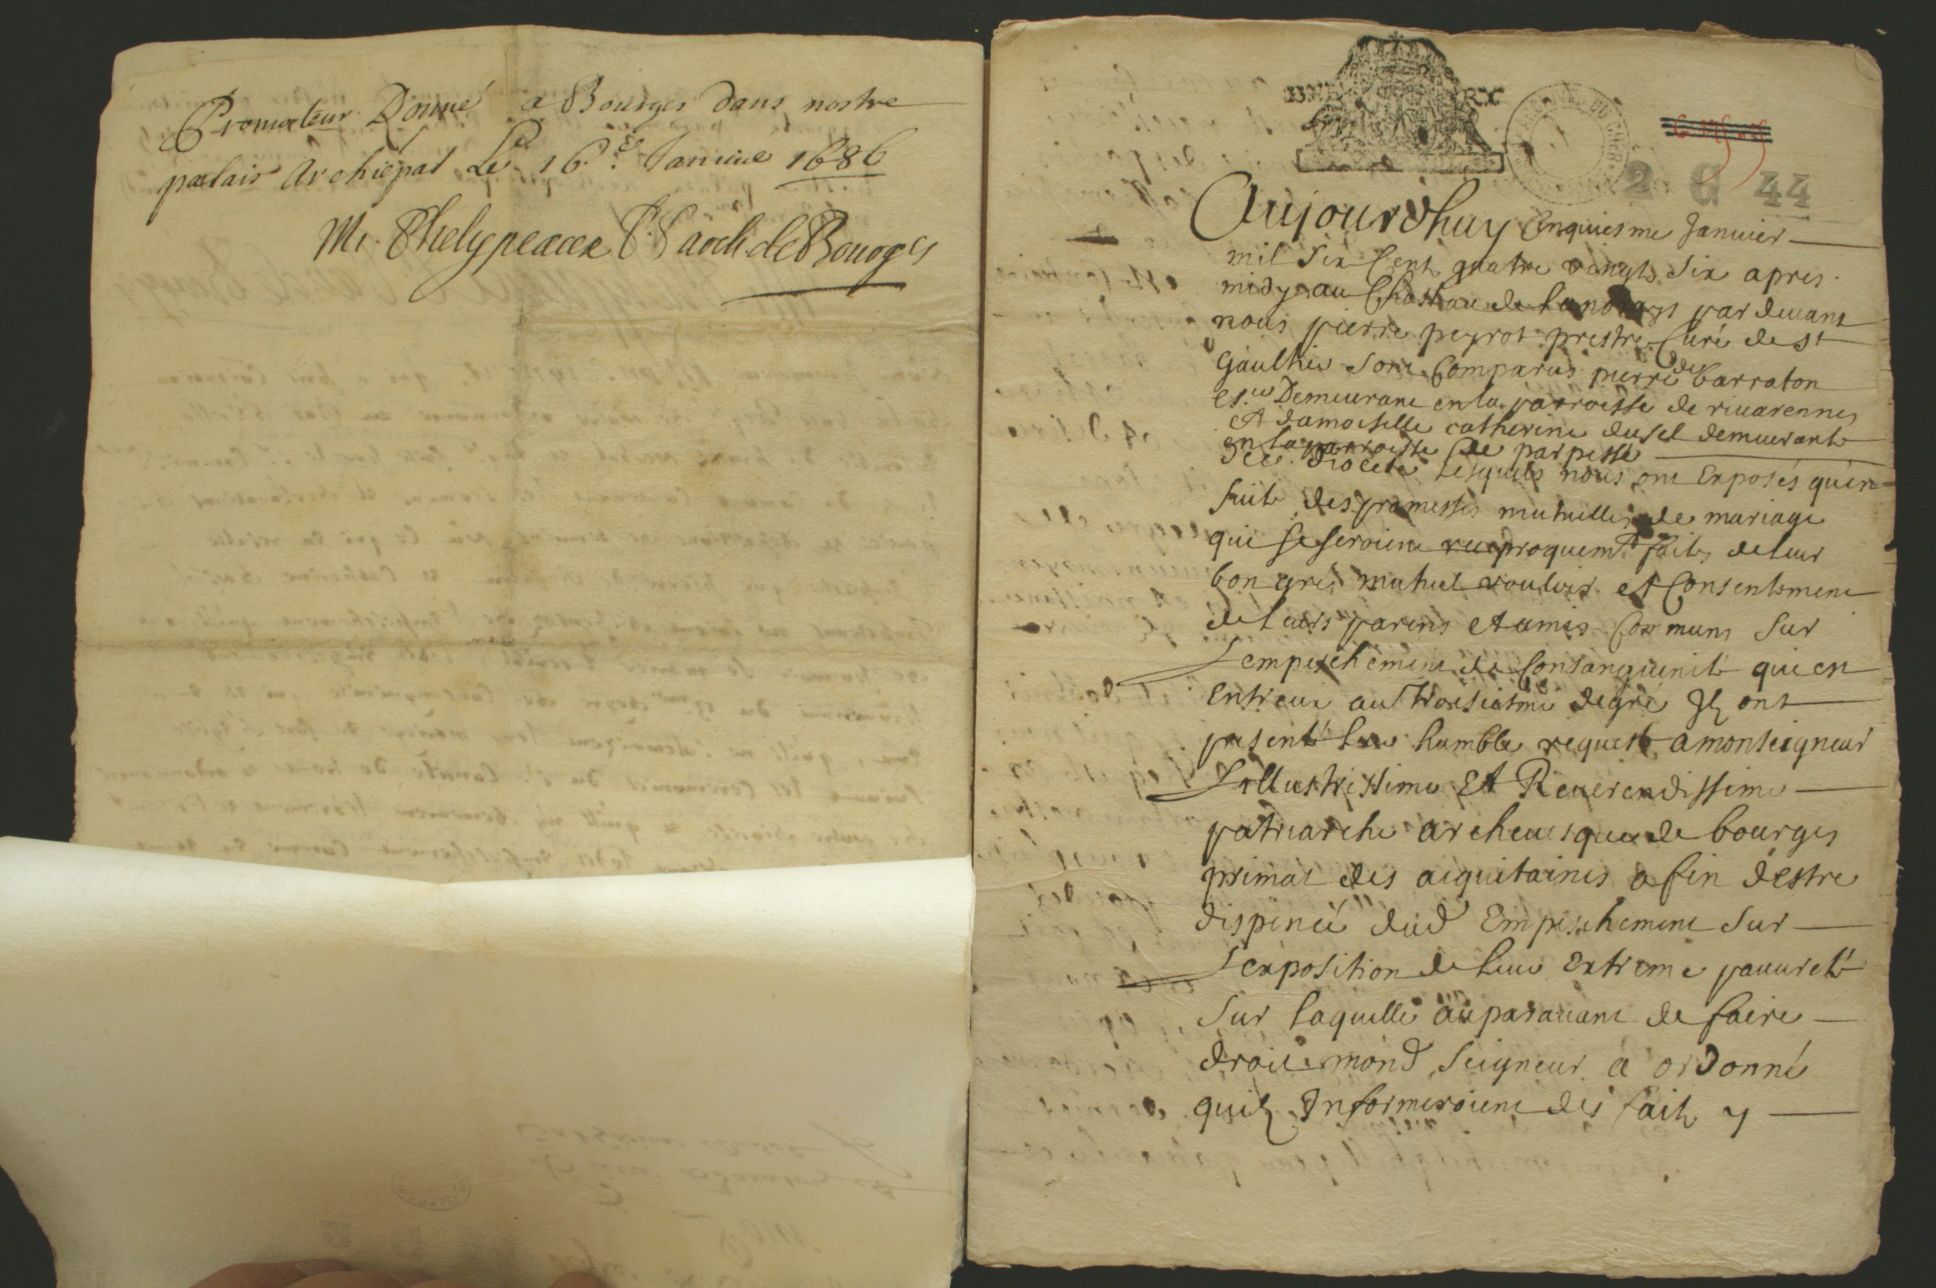 Promoteur Donné a Bourges dans nostre
palais Archiepal Le 16.e Janvier 1686
M. Phelypeaux P. P. arch. de Bourges
BER RY
ARCHIVES DU CHER
2 G 44
Aujourdhuy cinquiesme Janvier
mil six cent quatre vingts six apres
midy au chasteau de par devant
nous pierre peyrot prestre curé de st
Gaultier sont comparus pierre de barraton
es.er Demeurant en la parroisse de rivarennes
et damoiselle catherine dusel demeurante
en la parroisse de parpessé
dece diocese Lesquels nous ont exposés qu'en
suite des promesses mutuelles de mariage
qui se seroient reciproquemt faites de leur
bon gré mutuel vouloir et consentement
de leurs parens et amis communs sur
Lempeschement de consanguinité qui en
entreux au troisiesme degré Ilz ont
presenté leur humble requeste a monseigneur
Lillustrissime et Reverendissime
patriarche archevesque de bourges
primat des aiquitaines a fin destre
dispencé dud Empeschement sur
Lexposition de leur extreme pauureté
sur laquelle auparauant de faire
droit mond seigneur a ordonné
quilz Informeroient des faits y